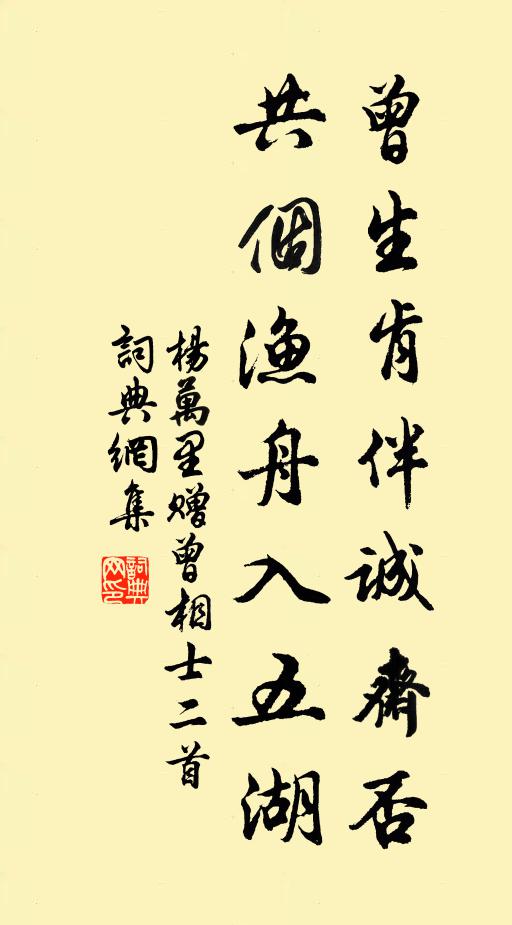 曾生肯伴誠齋否
共個漁舟入五湖
楊萬里贈曾相士二首
詞典網集
詞典网印